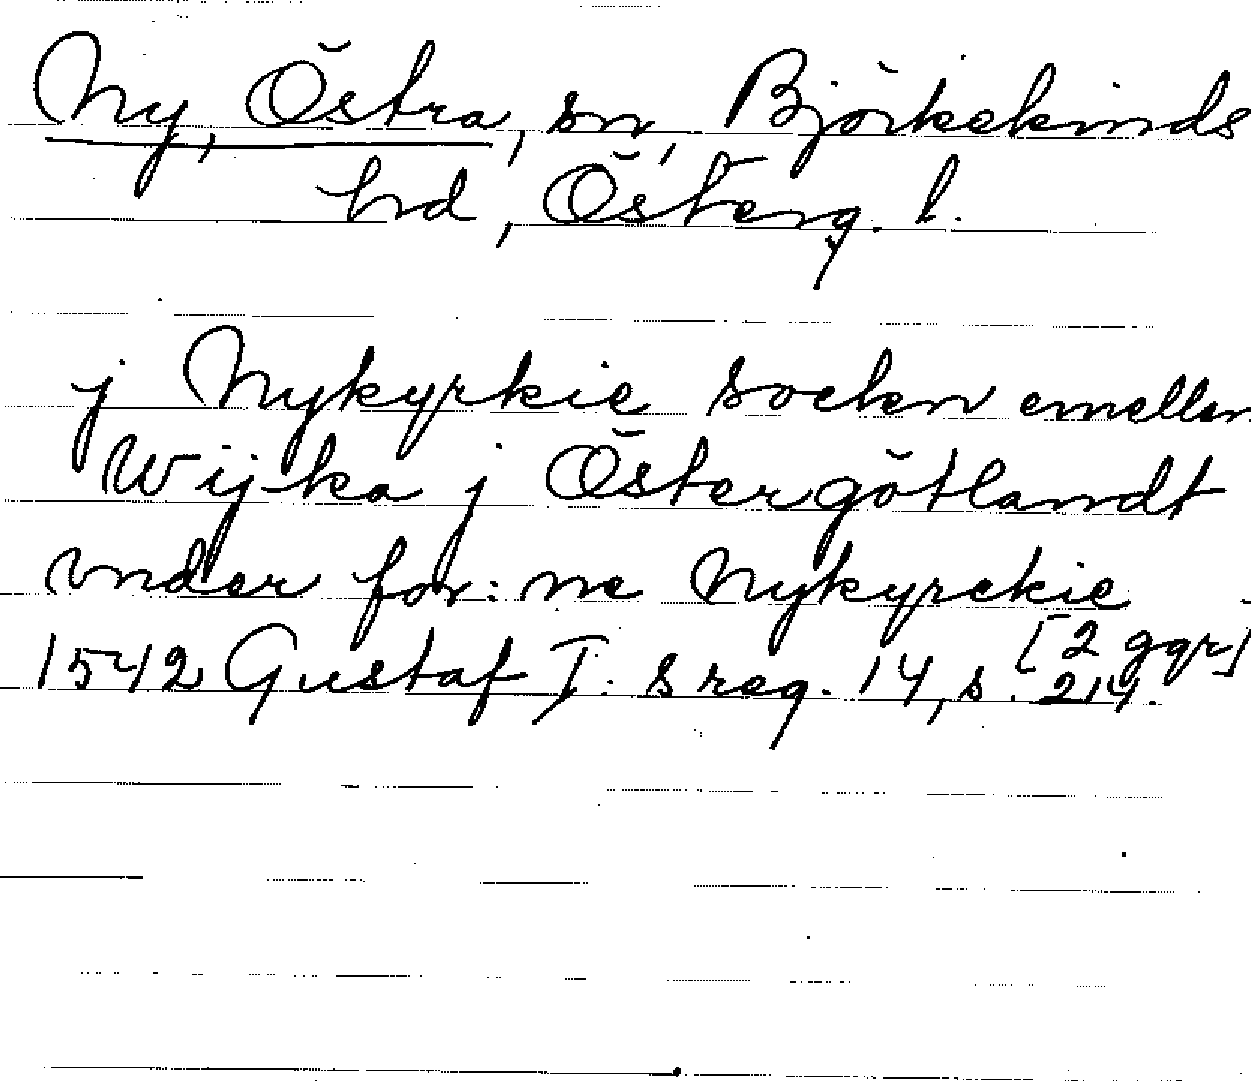 Ny, Östra, sn, Björkekinds
hd, Österg. l.
j Nykyrkie socken emellen
Wijka j Östergötlandt
vnder for: ne Nykyrckie
[2 ggr]
1542 Gustaf I: s reg. 14, s. 214.